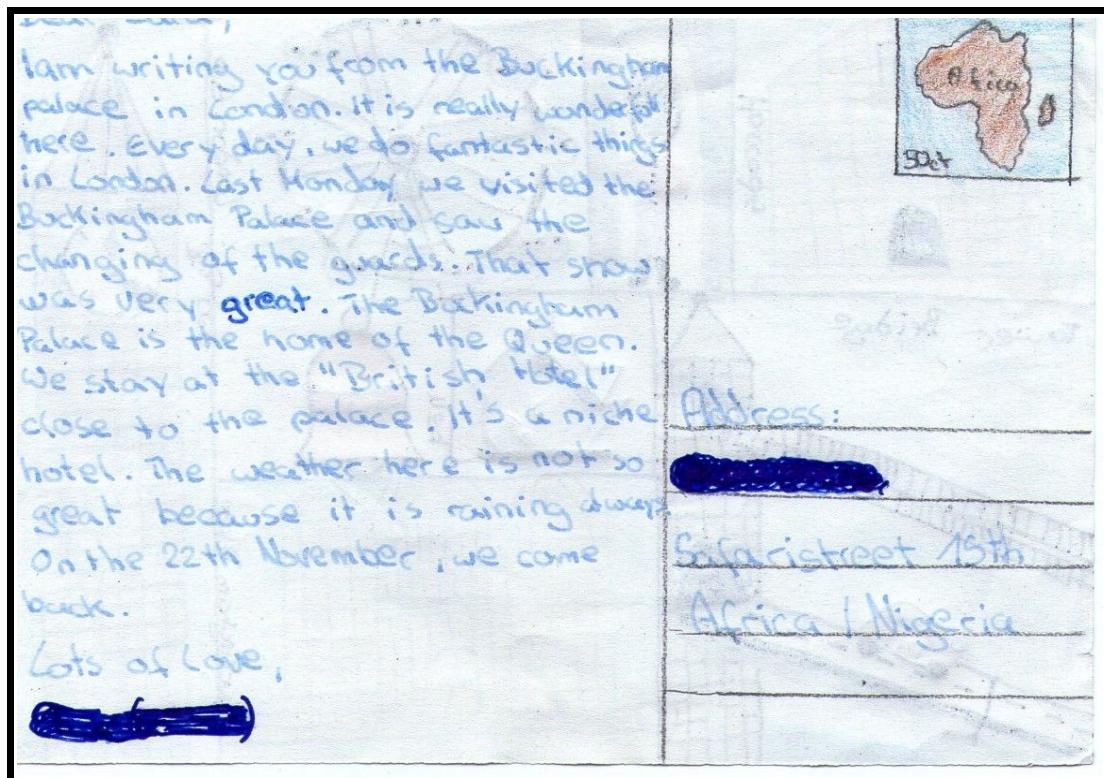 Dear
I am writing you from the Buckingham
palace in London. It is really wonderfull
here. Every day, we do fantastic things
in London. Last Monday we visited the
Buckingham Palace and saw the
changing of the guards. That show
was very great. The Buckingham
Palace is the home of the Queen.
We stay at the "British Hotel"
close to the palace. It's a niche
hotel. The weather here is not so
great because it is raining always.
On the 22th November, we come
back.
Lots of Love,
Africa
50ct
Tower Bridge
Address:
Safaristreet 15th
Africa / Nigeria